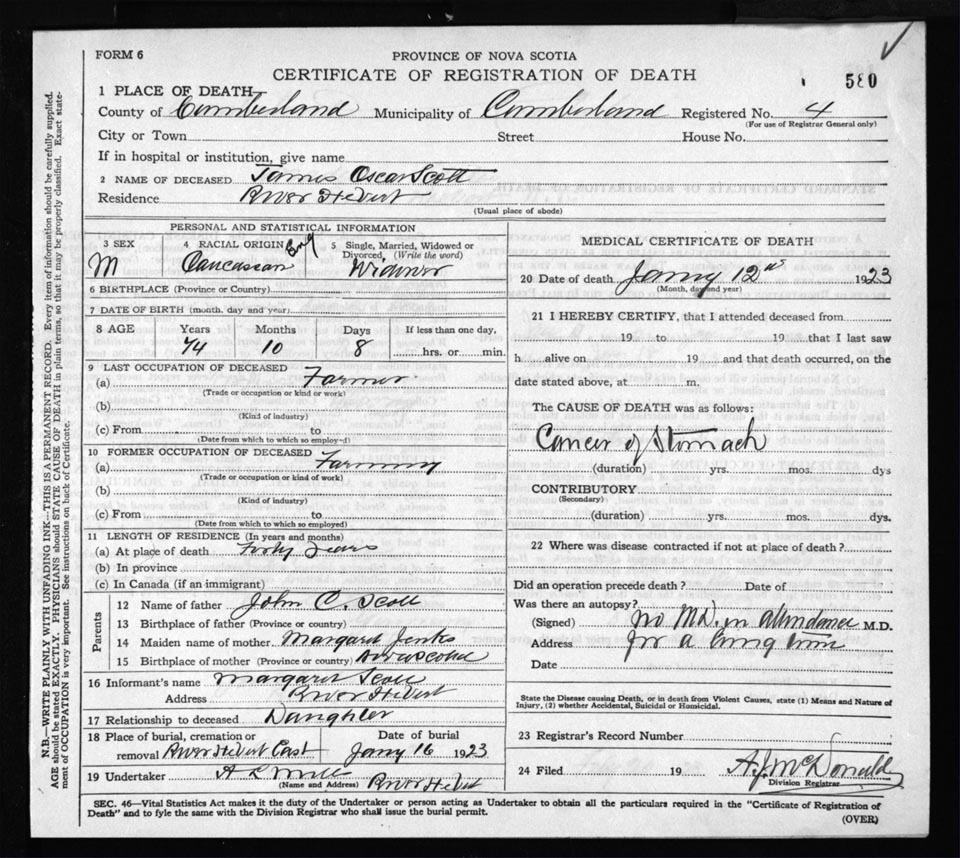 FORM 6
PROVINCE OF NOVA SCOTIA
CERTIFICATE OF REGISTRATION OF DEATH
580
1 PLACE OF DEATH
County of Cumberland Municipality of Cumberland Registered No. 4
(For use of Registrar General only)
City or Town Street House No.
If in hospital or institution, give name
2 NAME OF DECEASED James Oscar Scott
Residence River Hebert
(Usual place of abode)
PERSONAL AND STATISTICAL INFORMATION
3 SEX 4 RACIAL ORIGIN Eng 5 Single, Married, Widowed or Divorced, (Write the word)
M Caucasian Widower
6 BIRTHPLACE (Province or Country)
7 DATE OF BIRTH (month, day and year)
8 AGE Years Months Days If less than one day,
74 10 8 hrs. or min.
9 LAST OCCUPATION OF DECEASED
(a) Farmer
(Trade or occupation or kind or work)
(b)
(Kind of industry)
(c) From to
(Date from which to which so employ-d)
10 FORMER OCCUPATION OF DECEASED
(a) Farming
(Trade or occupation or kind of work)
(b)
(Kind of industry)
(c) From to
(Date from which to which so employed)
11 LENGTH OF RESIDENCE (In years and months)
(a) At place of death Forty Years
(b) In province
(c) In Canada (if an immigrant)
Parents
12 Name of father John C. Scott
13 Birthplace of father (Province or country)
14 Maiden name of mother Margaret Jenks
15 Birthplace of mother (Province or country) Novascotia
16 Informant's name Margaret Scott
Address River Hebert
17 Relationship to deceased Daughter
18 Place of burial, cremation or Date of burial
removal River Hebert East Jany 16 1923
19 Undertaker A L
(Name and Address) River Hebert
MEDICAL CERTIFICATE OF DEATH
20 Date of death Jany 12 1923
(Month, day and year)
21 I HEREBY CERTIFY, that I attended deceased from
19 to 19 that I last saw
h alive on 19 and that death occurred, on the
date stated above, at m.
The CAUSE OF DEATH was as follows:
Cancer of Stomach
(duration) yrs. mos. dys
CONTRIBUTORY
(Secondary)
(duration) yrs. mos. dys.
22 Where was disease contracted if not at place of death?
Did an operation precede death? Date of
Was there an autopsy?
(Signed) no MD. in attendance M.D.
Address for a long time
Date
State the Disease causing Death, or in death from Violent Causes, state (1) Means and Nature of
Injury, (2) whether Accidental, Suicidal or Homicidal.
23 Registrar's Record Number
24 Filed 19 A.J. McDonald
Division Registrar
SEC. 46—Vital Statistics Act makes it the duty of the Undertaker or person acting as Undertaker to obtain all the particulars required in the "Certificate of Registration of
Death" and to fyle the same with the Division Registrar who shall issue the burial permit.
(OVER)
N.B.—WRITE PLAINLY WITH UNFADING INK—THIS IS A PERMANENT RECORD. Every item of information should be carefully supplied.
AGE should be stated EXACTLY. PHYSICIANS should STATE CAUSE OF DEATH in plain terms, so that it may be properly classified. Exact state-
ment of OCCUPATION is very important. See instructions on back of Certificate.